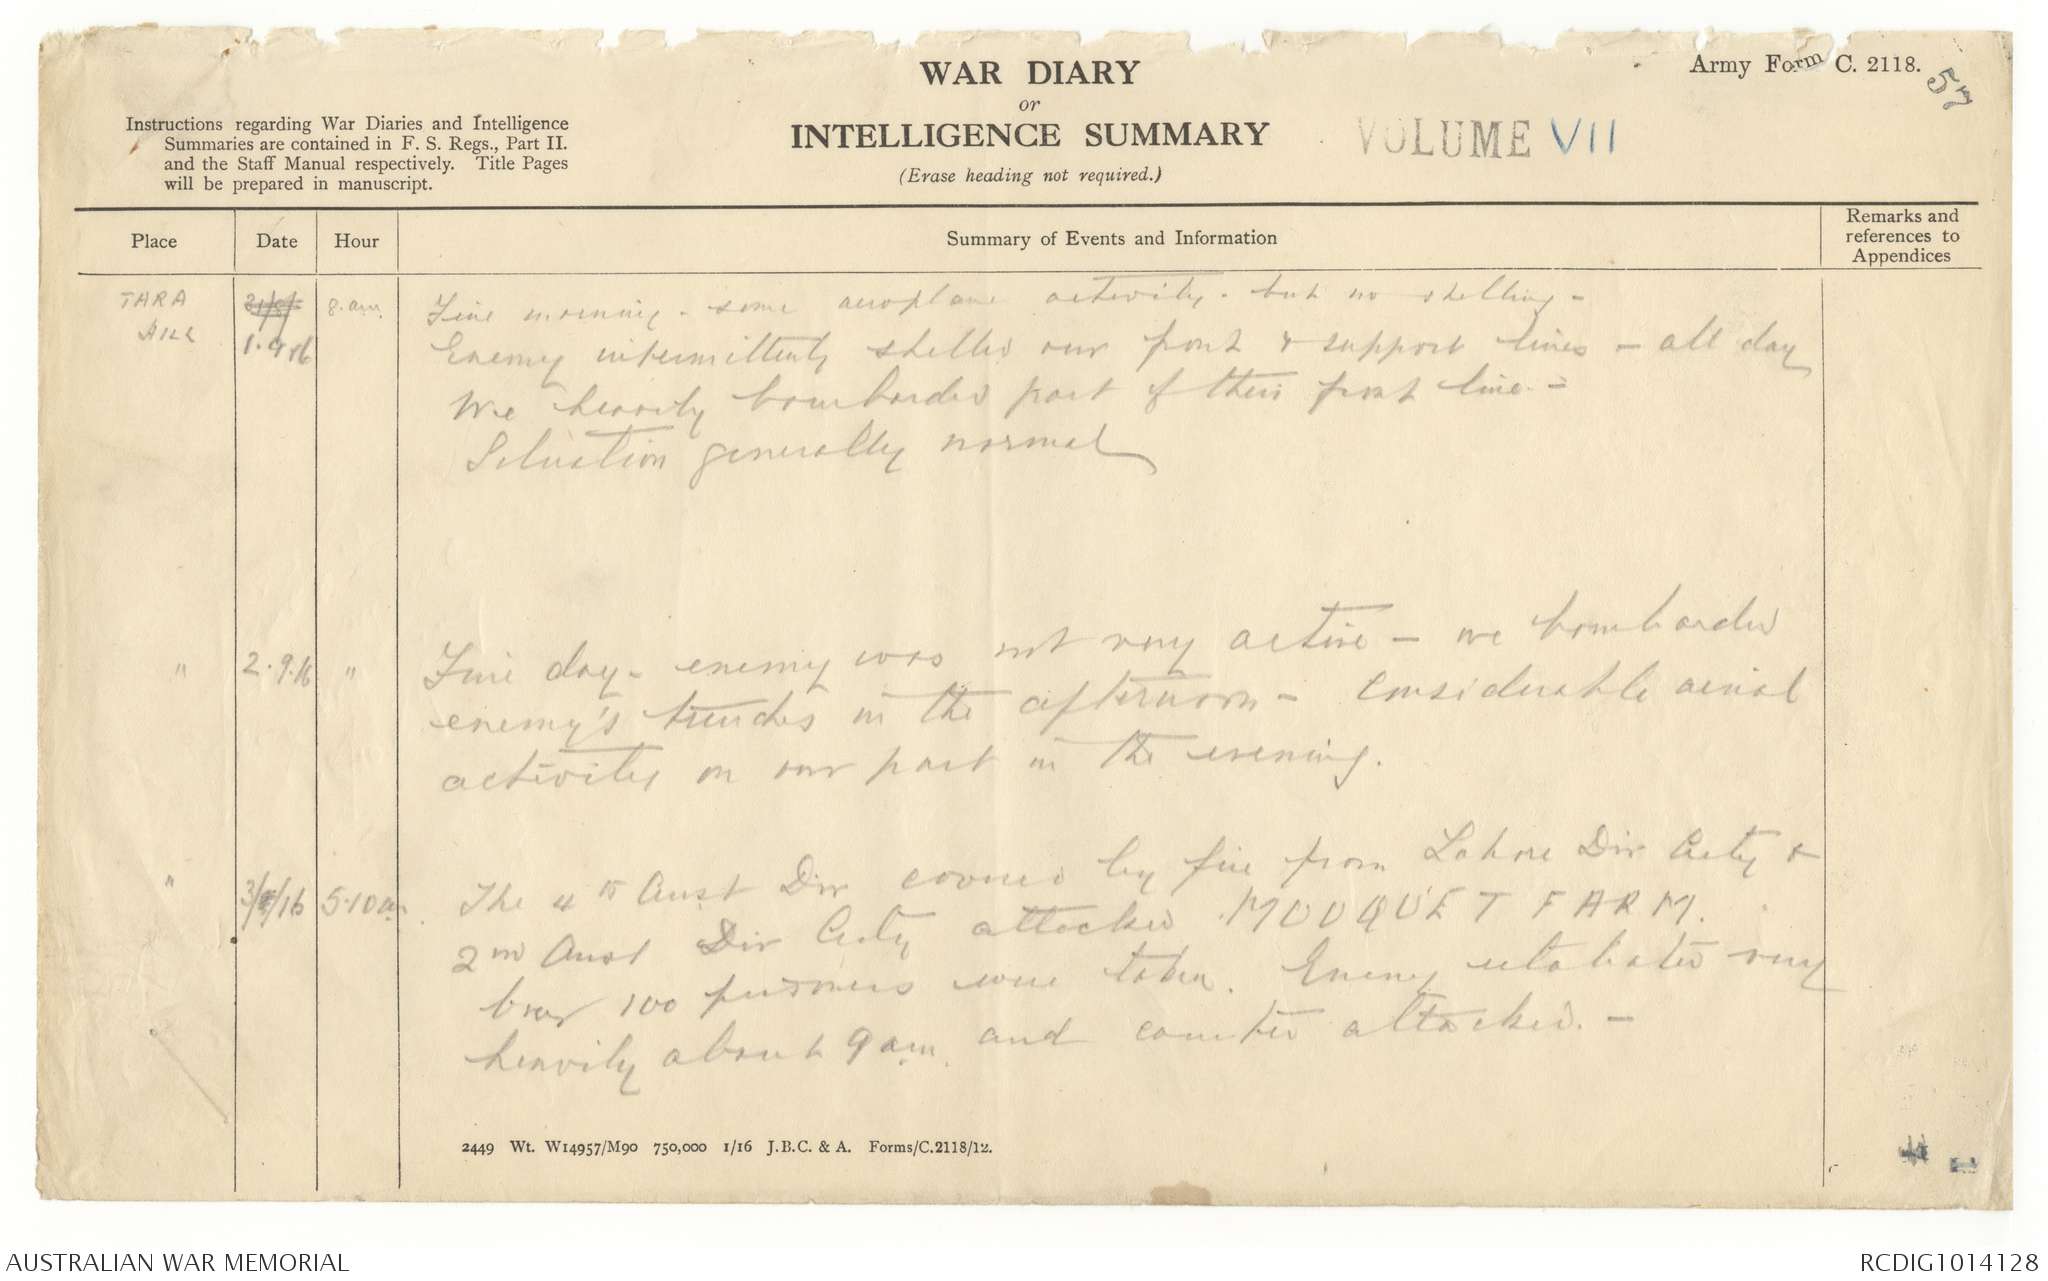 WAR DIARY
or
INTELLIGENCE SUMMARY
(Erase heading not required.)
Army Form C. 2118.
57
VOLUME VII
Instructions regarding War Diaries and Intelligence
Summaries are contained in F. S. Regs., Part II.
and the Staff Manual respectively. Title Pages
will be prepared in manuscript.
Place
Date
Hour
Summary of Events and Information
Remarks and
references to
Appendices
TARA 31/8/ 8 am Fine morning - some aeroplane activity - but no shelling -
HILL 1.9.16 Enemy intermittently shelled our front & support lines - all day
We heavily bombarded part of their front line. -
Situation generally normal
" 2.9.16 " Fine day - enemy was not very active - we bombarded
enemy's trenches in the afternoon - considerable aerial
activity on our part in the evening.
" 3/9/16 5.10am. The 4th Aust Div covered by fire from Lahore Div Arty &
2nd Aust Div Arty attacked MOUQUET FARM.
Over 100 prisoners were taken. Enemy retaliated very
heavily about 9 am. and counter attacked. -
2449 Wt. W14957/M90 750,000 1/16 J.B.C. & A. Forms/C.2118/12.
AUSTRALIAN WAR MEMORIAL
RCDIG1014128